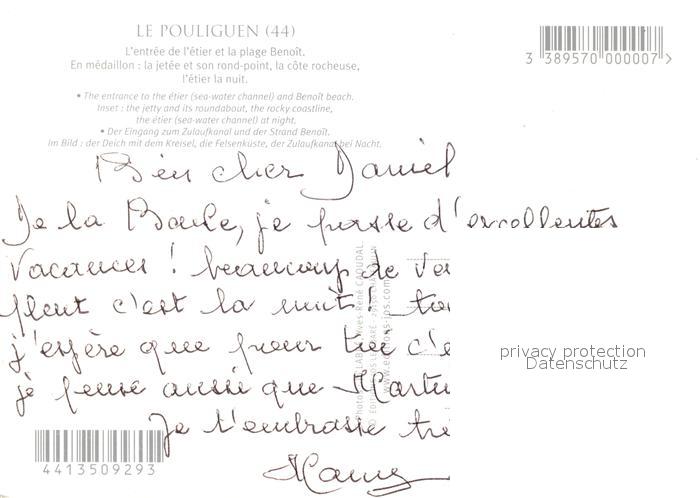 LE POULIGUEN (44)
L'entrée de l'étier et la plage Benoît.
En médaillon : la jetée et son rond-point, la côte rocheuse,
l'étier la nuit.
• The entrance to the étier (sea-water channel) and Benoît beach.
Inset : the jetty and its roundabout, the rocky coastline,
the étier (sea-water channel) at night.
• Der Eingang zum Zulaufkanal und der Strand Benoît.
Im Bild : der Deich mit dem Kreisel, die Felsenküste, der Zulaufkanal bei Nacht.
3 389570 000007 >
Bien cher Daniel
De la Baule, je passe d'excellentes
vacances ! beaucoup de
pleut c'est la nuit !
j'espère que pour toi c'e
je pense aussi que
Je t'embrasse
privacy protection
Datenschutz
4413509293